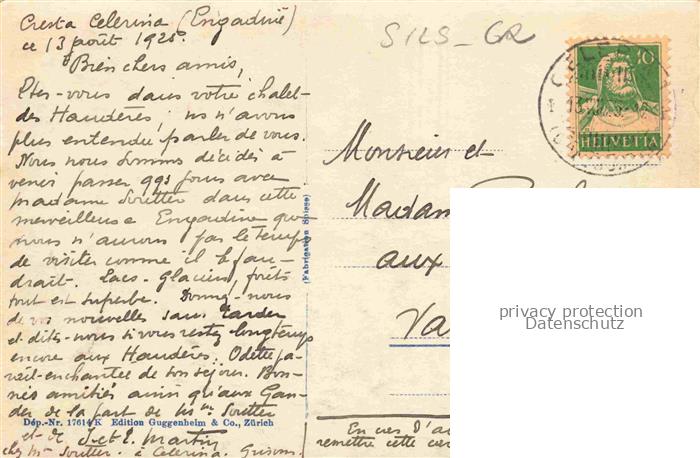 Cresta Celerina (Engadine)
ce 13 août 1928.
Bien chers amis,
Etes-vous dans votre châlet
des Haudères, ns n'avons
plus entendu parler de vous.
Nous nous sommes décidés à
venir passer qqs jours avec
madame Soutter dans cette
merveilleuse Engadine que
nous n'aurons pas le temps
de visiter comme il le fau-
drait. Lacs-Glaciers, forêts
tout est superbe. Donnez-nous
de vos nouvelles sans tarder
et dites-nous si vous restez longtemps
encore aux Haudères. Odette pa-
rait enchantée de son séjour. Bon-
nes amitiés ainsi qu'aux Gan-
der de la part de Mme Soutter
et de J. et E. Martin
chez Mme Soutter. à Celerina. Grisons.
Dép.-Nr. 17614 K Edition Guggenheim & Co., Zürich
(Fabrication Suisse)
SILS - GR
10
HELVETIA
Monsieur et
Madam
aux
Va
En cas d'a
remettre cette
privacy protection
Datenschutz